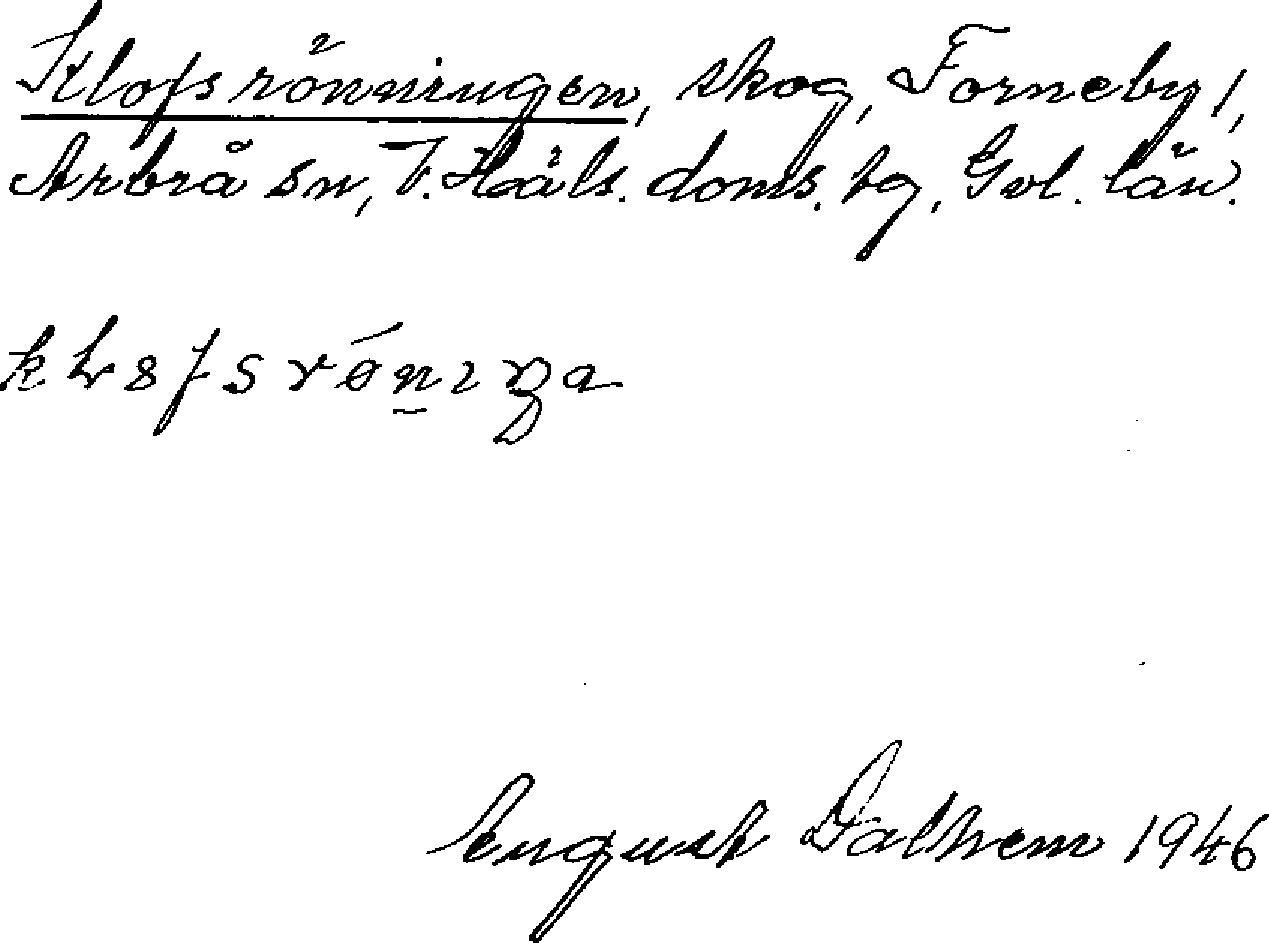 Klofsrönningen, skog, Forneby 1,
Arbrå sn, V. Häls. doms. tg, Gvl. län.
August Dalhem 1946